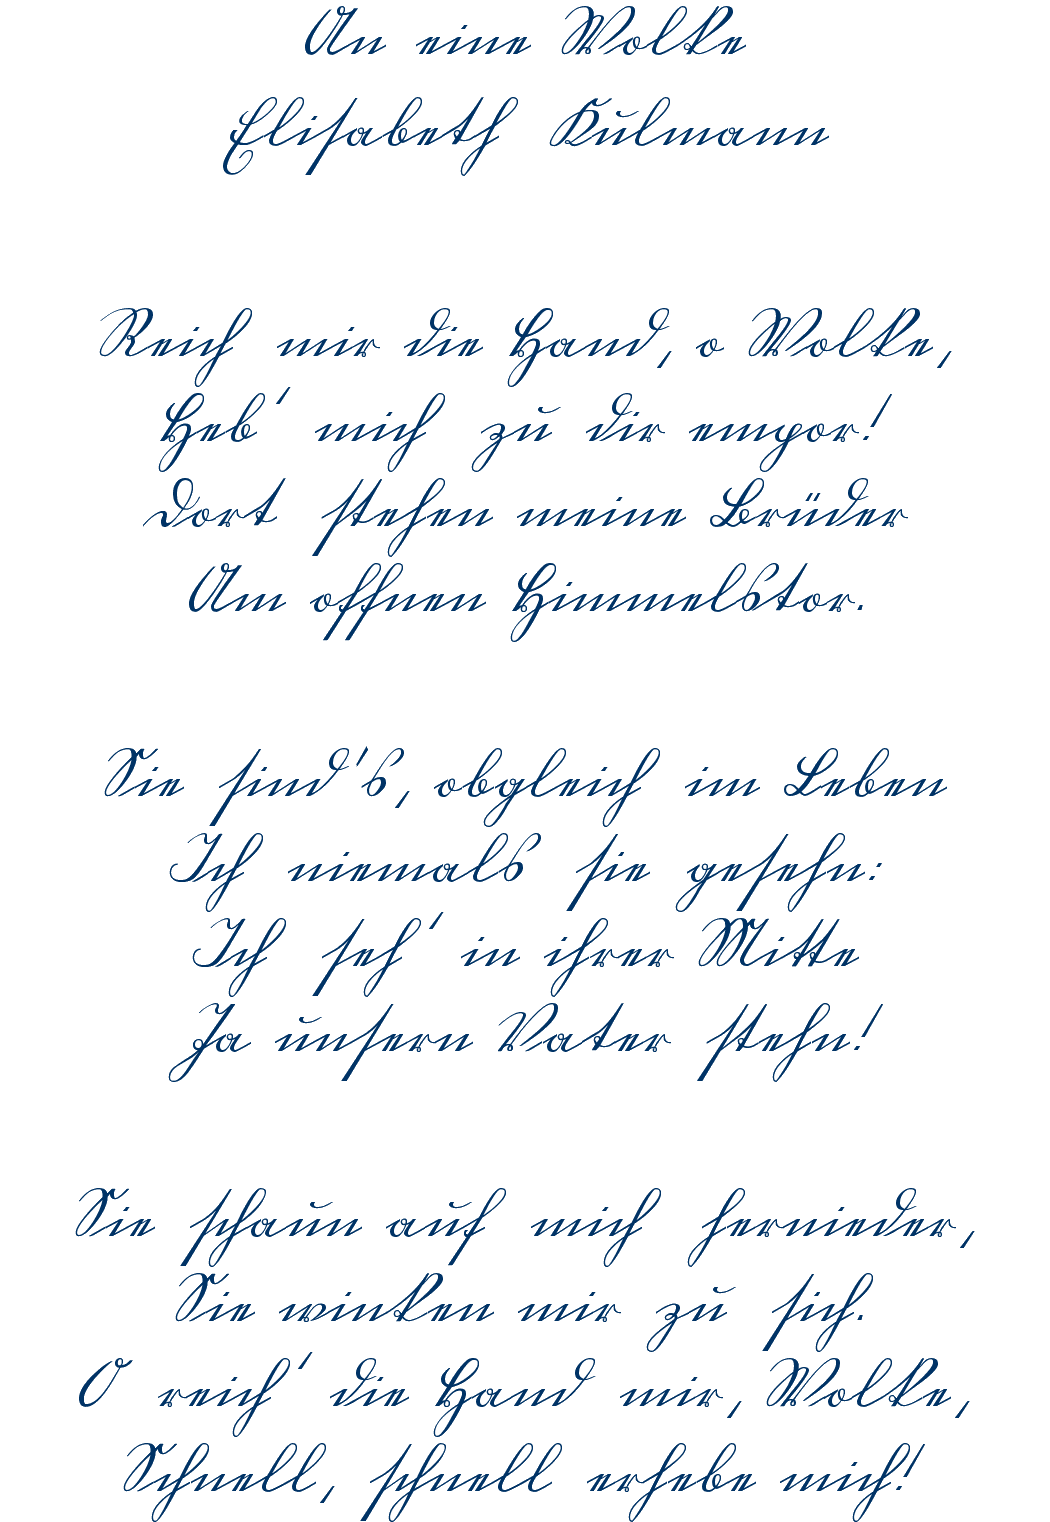 An eine Wolke
Elisabeth Kulmann
Reich mir die Hand, o Wolke,
Heb' mich zu dir empor!
Dort stehen meine Brüder
Am offnen Himmelstor.
Sie sind's, obgleich im Leben
Ich niemals sie gesehn:
Ich seh' in ihrer Mitte
Ja unsern Vater stehn!
Sie schaun auf mich hernieder,
Sie winken mir zu sich.
O reich' die Hand mir, Wolke,
Schnell, schnell erhebe mich!